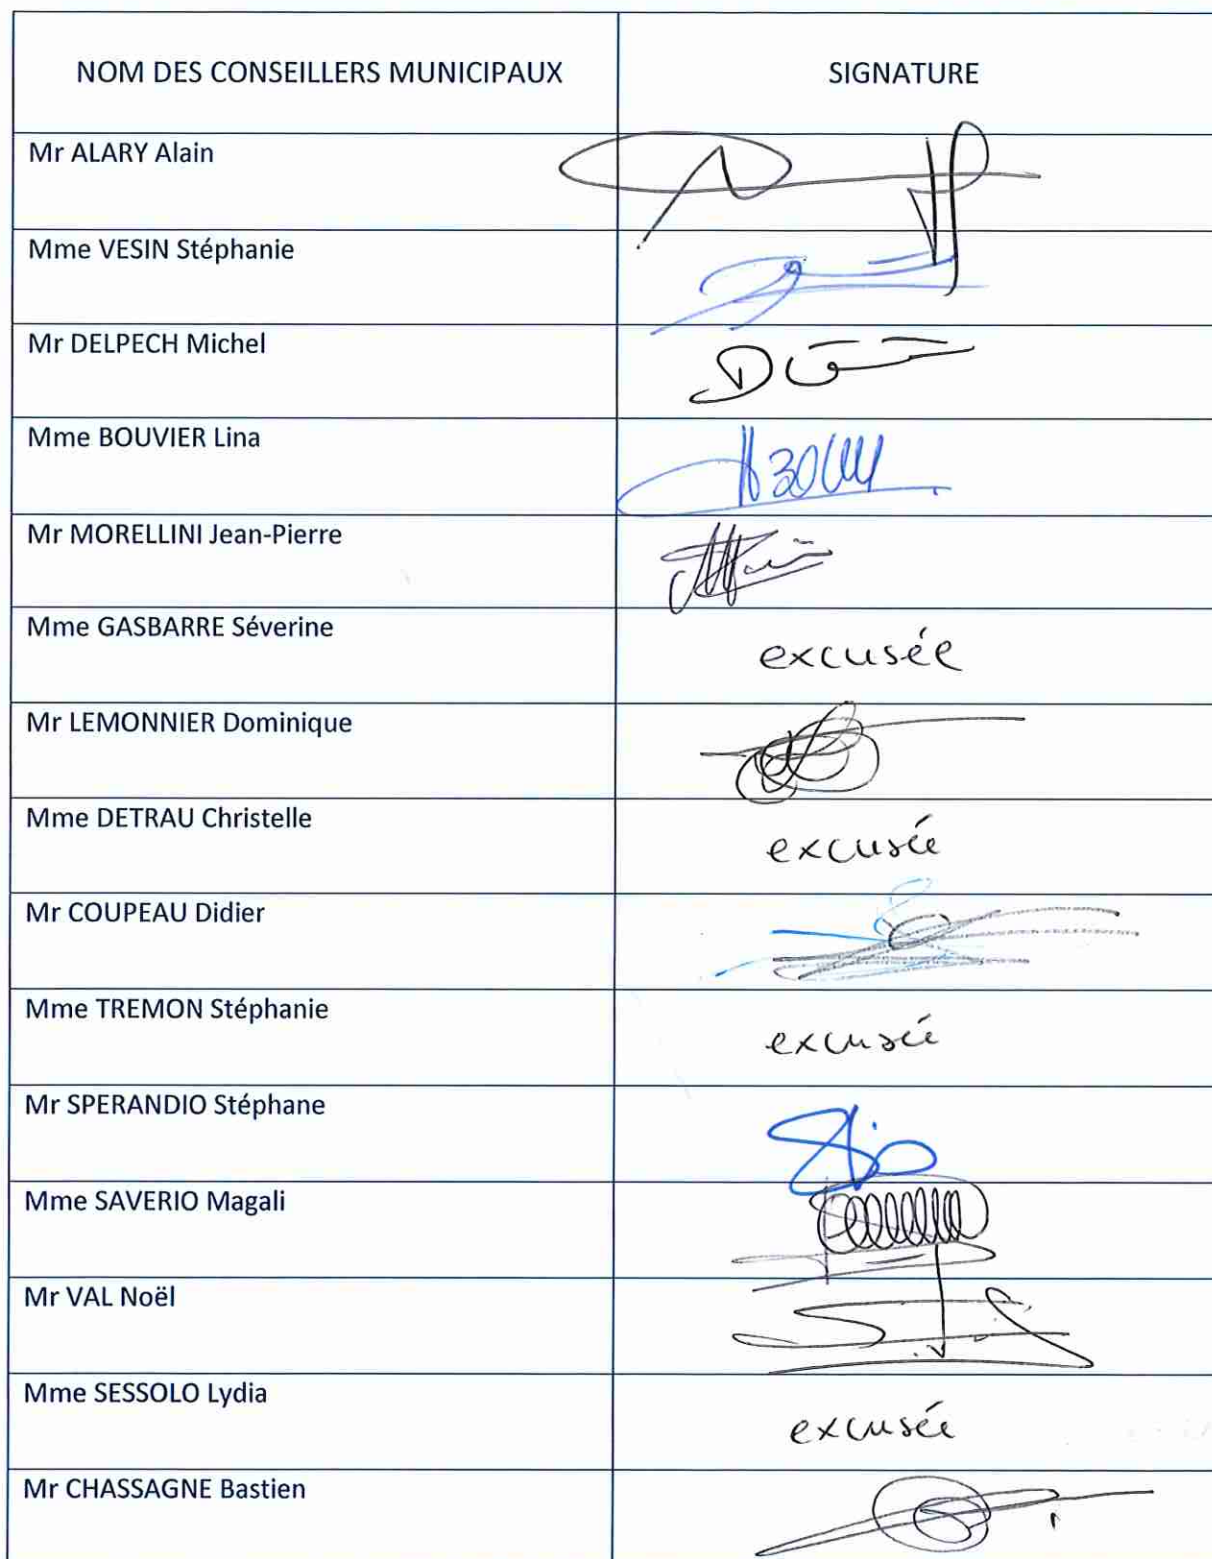 NOM DES CONSEILLERS MUNICIPAUX SIGNATURE
Mr ALARY Alain
Mme VESIN Stéphanie
Mr DELPECH Michel
Mme BOUVIER Lina
Mr MORELLINI Jean-Pierre
Mme GASBARRE Séverine excusée
Mr LEMONNIER Dominique
Mme DETRAU Christelle excusée
Mr COUPEAU Didier
Mme TREMON Stéphanie excusée
Mr SPERANDIO Stéphane
Mme SAVERIO Magali
Mr VAL Noël
Mme SESSOLO Lydia excusée
Mr CHASSAGNE Bastien